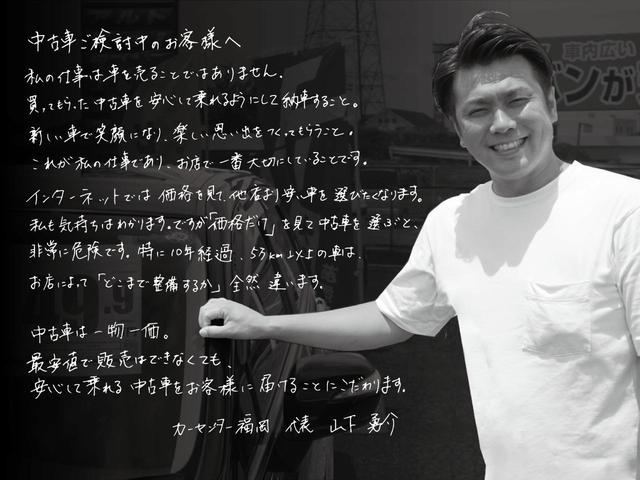 中古車ご検討中のお客様へ
私の仕事は車を売ることではありません。
買ってもらった中古車を安心して乗れるようにして納車すること。
新しい車で笑顔になり、楽しい思い出をつくってもらうこと。
これが私の仕事であり、お店で一番大切にしていることです。
インターネットでは価格を見て、他店より安い車を選びたくなります。
私も気持ちはわかります。ですが「価格だけ」を見て中古車を選ぶと、
非常に危険です。特に10年経過、5万km以上の車は、
お店によって「どこまで整備するか」全然違います。
中古車は一物一価。
最安値で販売はできなくても、
安心して乗れる中古車をお客様に届けることにこだわります。
カーセンター福岡 代表 山下 勇介
車内広い
ンが
9.9